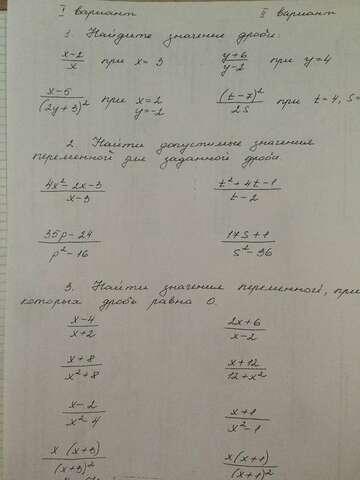 I вариант II вариант
1. Найдите значение дроби:
(x-2)/x при x = 3 (y+6)/(y-2) при y=4
(x-5)/(2y+3)² при x=2 y=-2 (t-7)²/(2s) при t=4, s=
2. Найти допустимые значения
переменной для заданной дроби.
(4x²-2x-3)/(x-3) (t²+4t-1)/(t-2)
(35p-24)/(p²-16) (17s+1)/(s²-36)
3. Найти значения переменной, при
которых дробь равна 0.
(x-4)/(x+2) (2x+6)/(x-2)
(x+8)/(x²+8) (x+12)/(12+x²)
(x-2)/(x²-4) (x+1)/(x²-1)
x(x+3)/(x+3)² x(x+1)/(x+1)²